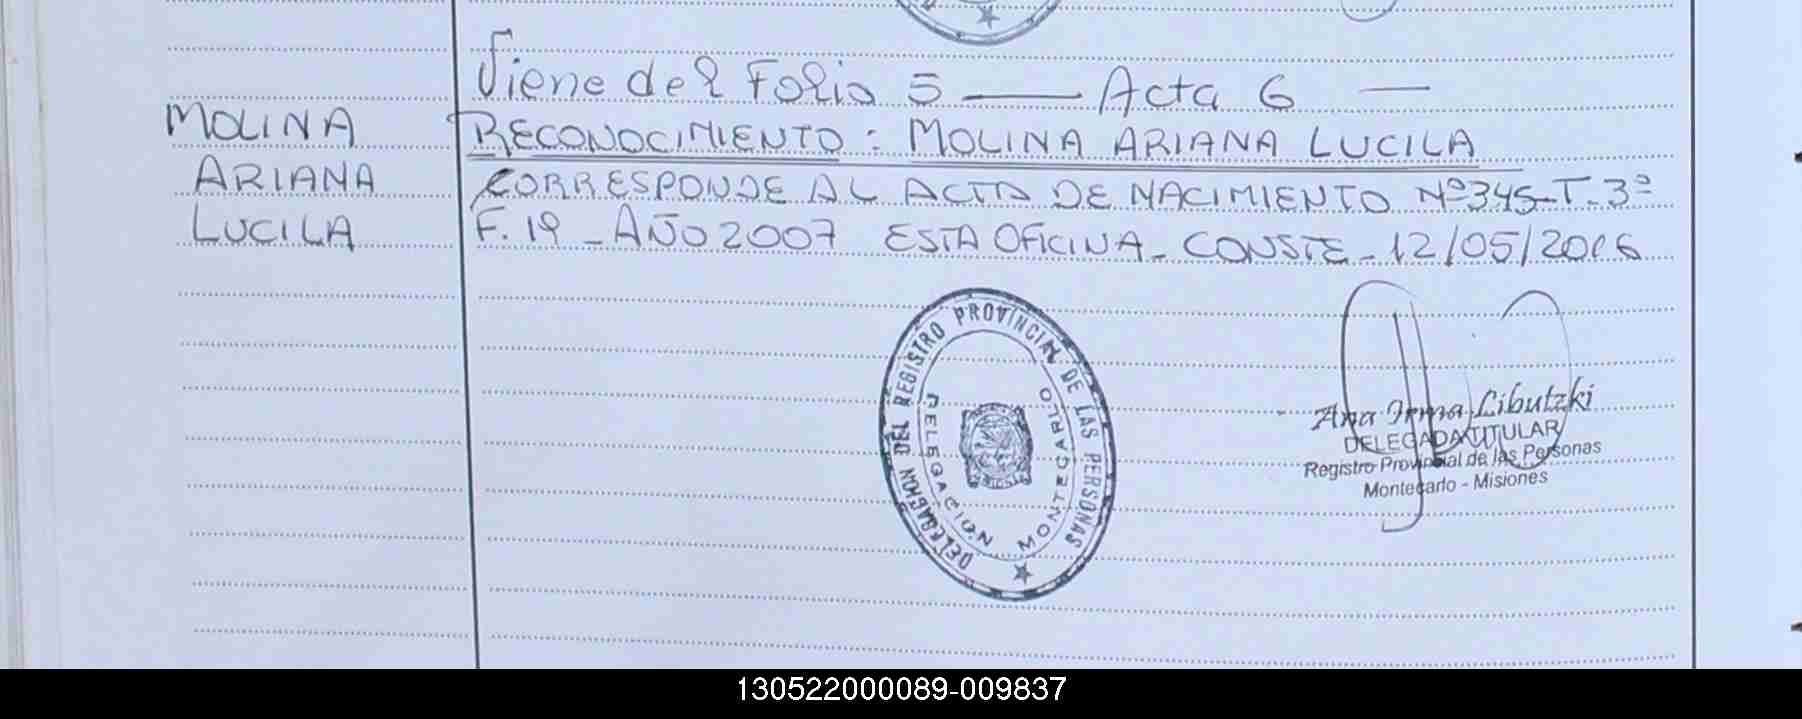 Viene del Folio 5 — Acta 6 —
MOLINA
ARIANA
LUCILA
RECONOCIMIENTO: MOLINA ARIANA LUCILA
CORRESPONDE AL ACTA DE NACIMIENTO Nº345-T.3º
F.19 - AÑO 2007 ESTA OFICINA - CONSTE - 12/05/2016
DEL REGISTRO PROVINCIAL DE LAS PERSONAS
DELEGACION MONTECARLO
Ana Irma Libutzki
DELEGADA TITULAR
Registro Provincial de las Personas
Montecarlo - Misiones
130522000089-009837